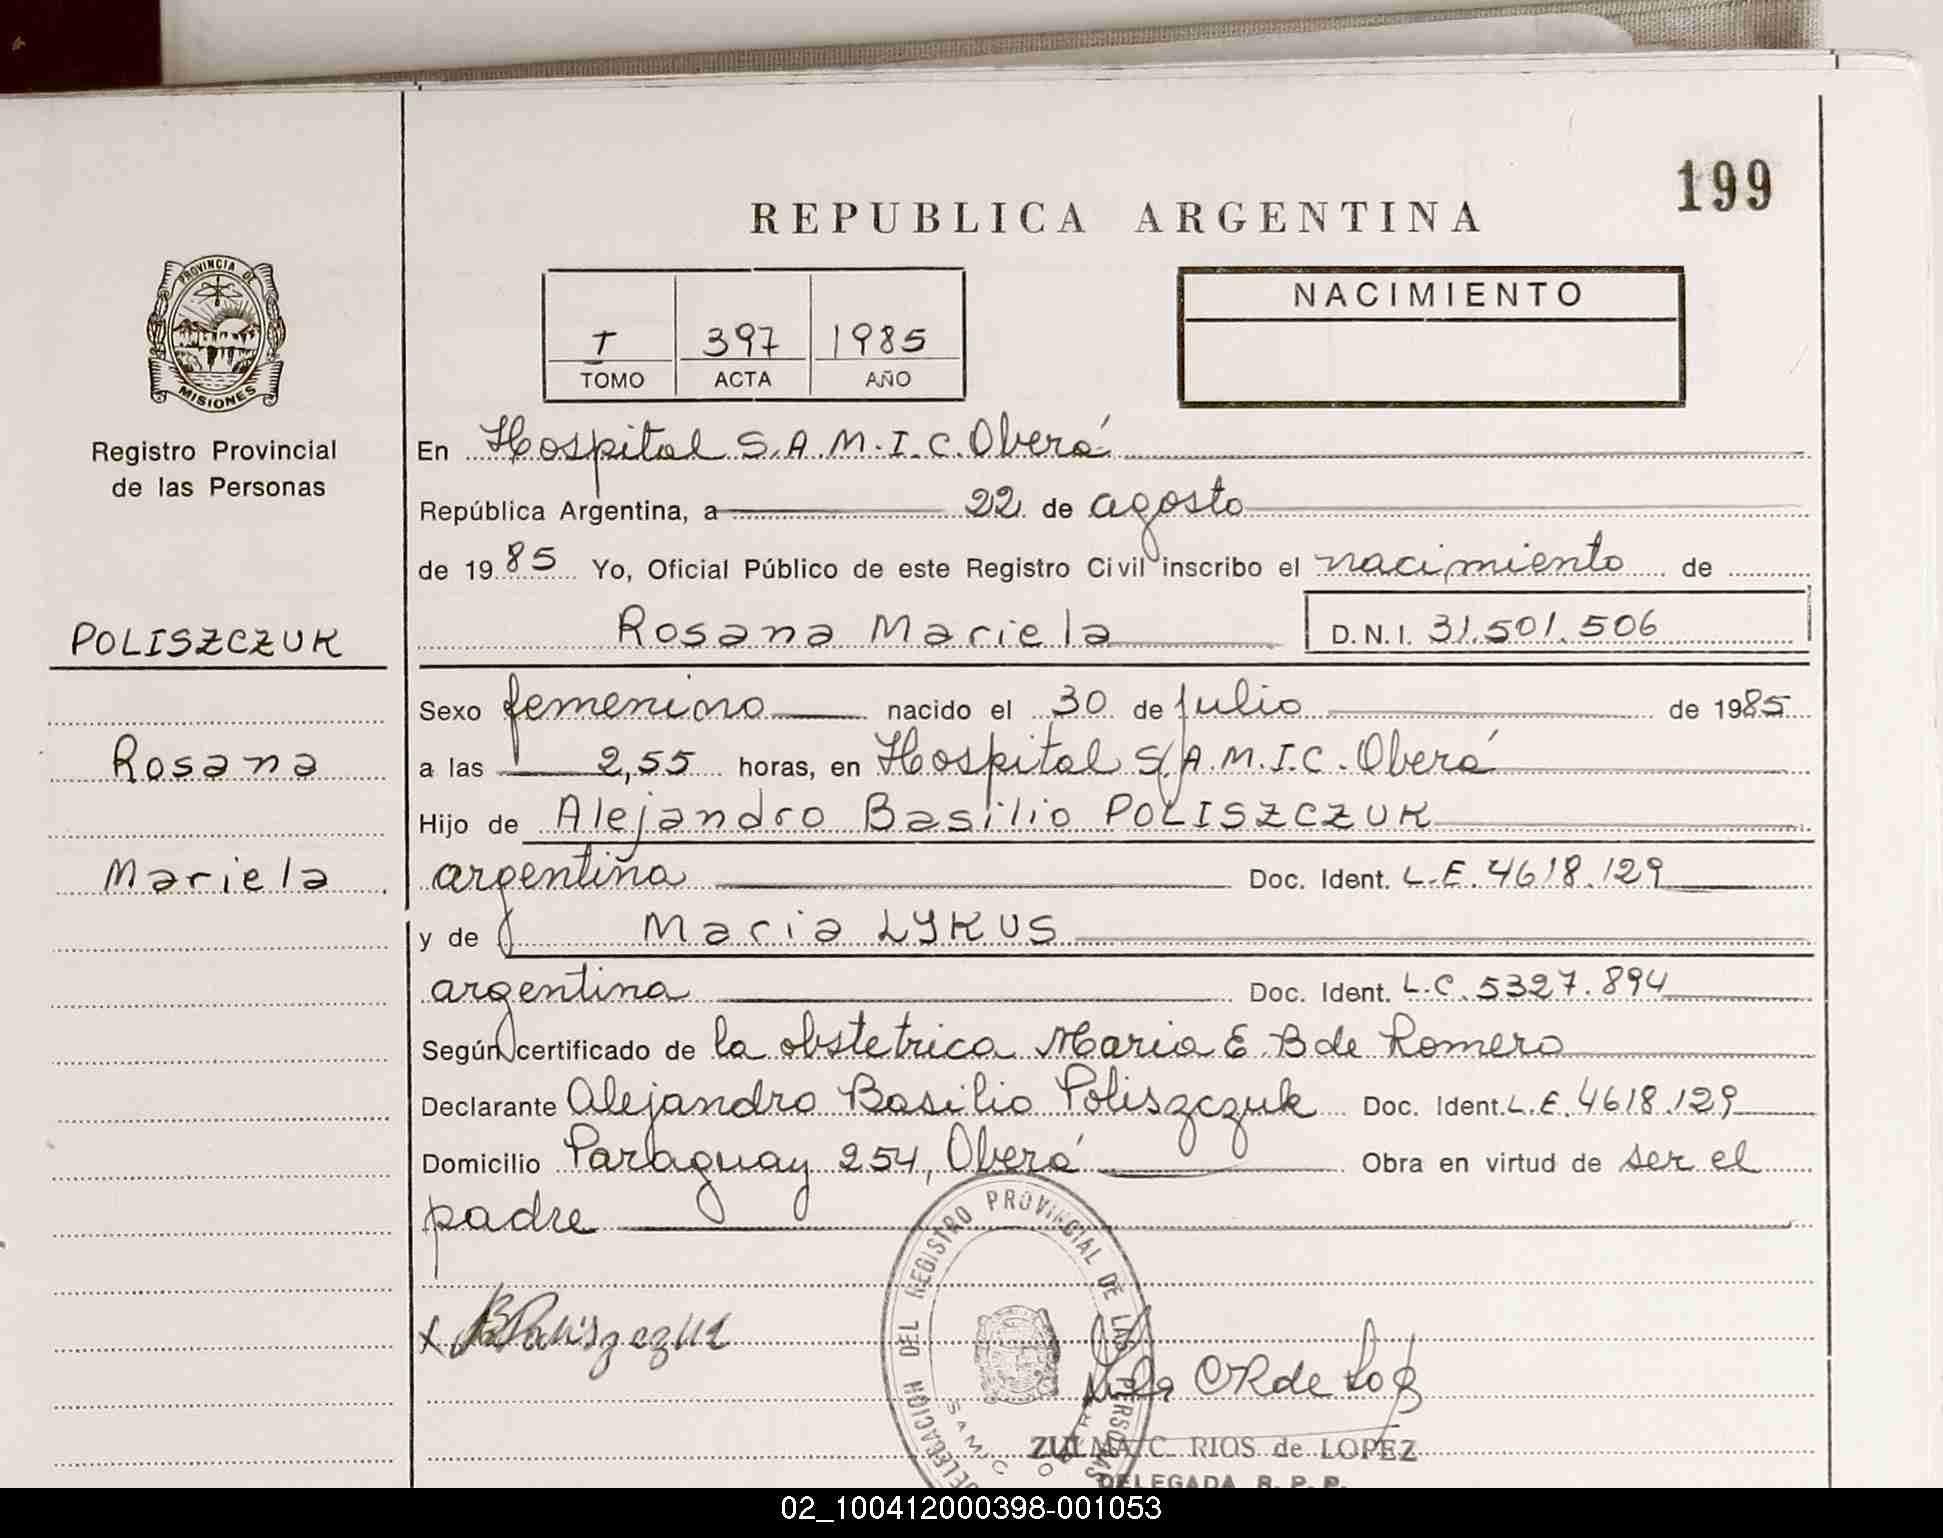 199
REPUBLICA ARGENTINA
PROVINCIA DE
MISIONES
Registro Provincial
de las Personas
T 397 1985
TOMO ACTA AÑO
NACIMIENTO
POLISZCZUK
Rosana
Mariela
En Hospital S.A.M.I.C. Oberá
República Argentina, a 22 de agosto
de 1985 Yo, Oficial Público de este Registro Civil inscribo el nacimiento de
Rosana Mariela D.N.I. 31.501.506
Sexo femenino nacido el 30 de julio de 1985
a las 2,55 horas, en Hospital S.A.M.I.C. Oberá
Hijo de Alejandro Basilio POLISZCZUK
argentina Doc. Ident. L.E. 4618.129
y de Maria LYKUS
argentina Doc. Ident. L.C. 5327.894
Según certificado de la obstetrica Maria E. B de Romero
Declarante Alejandro Basilio Poliszczuk Doc. Ident. L.E. 4618.129
Domicilio Paraguay 254, Oberá Obra en virtud de ser el
padre
DELEGACION DEL REGISTRO PROVINCIAL DE LAS PERSONAS
SAMIC
ZULMA C. RIOS de LOPEZ
DELEGADA R. P. P.
02_100412000398-001053